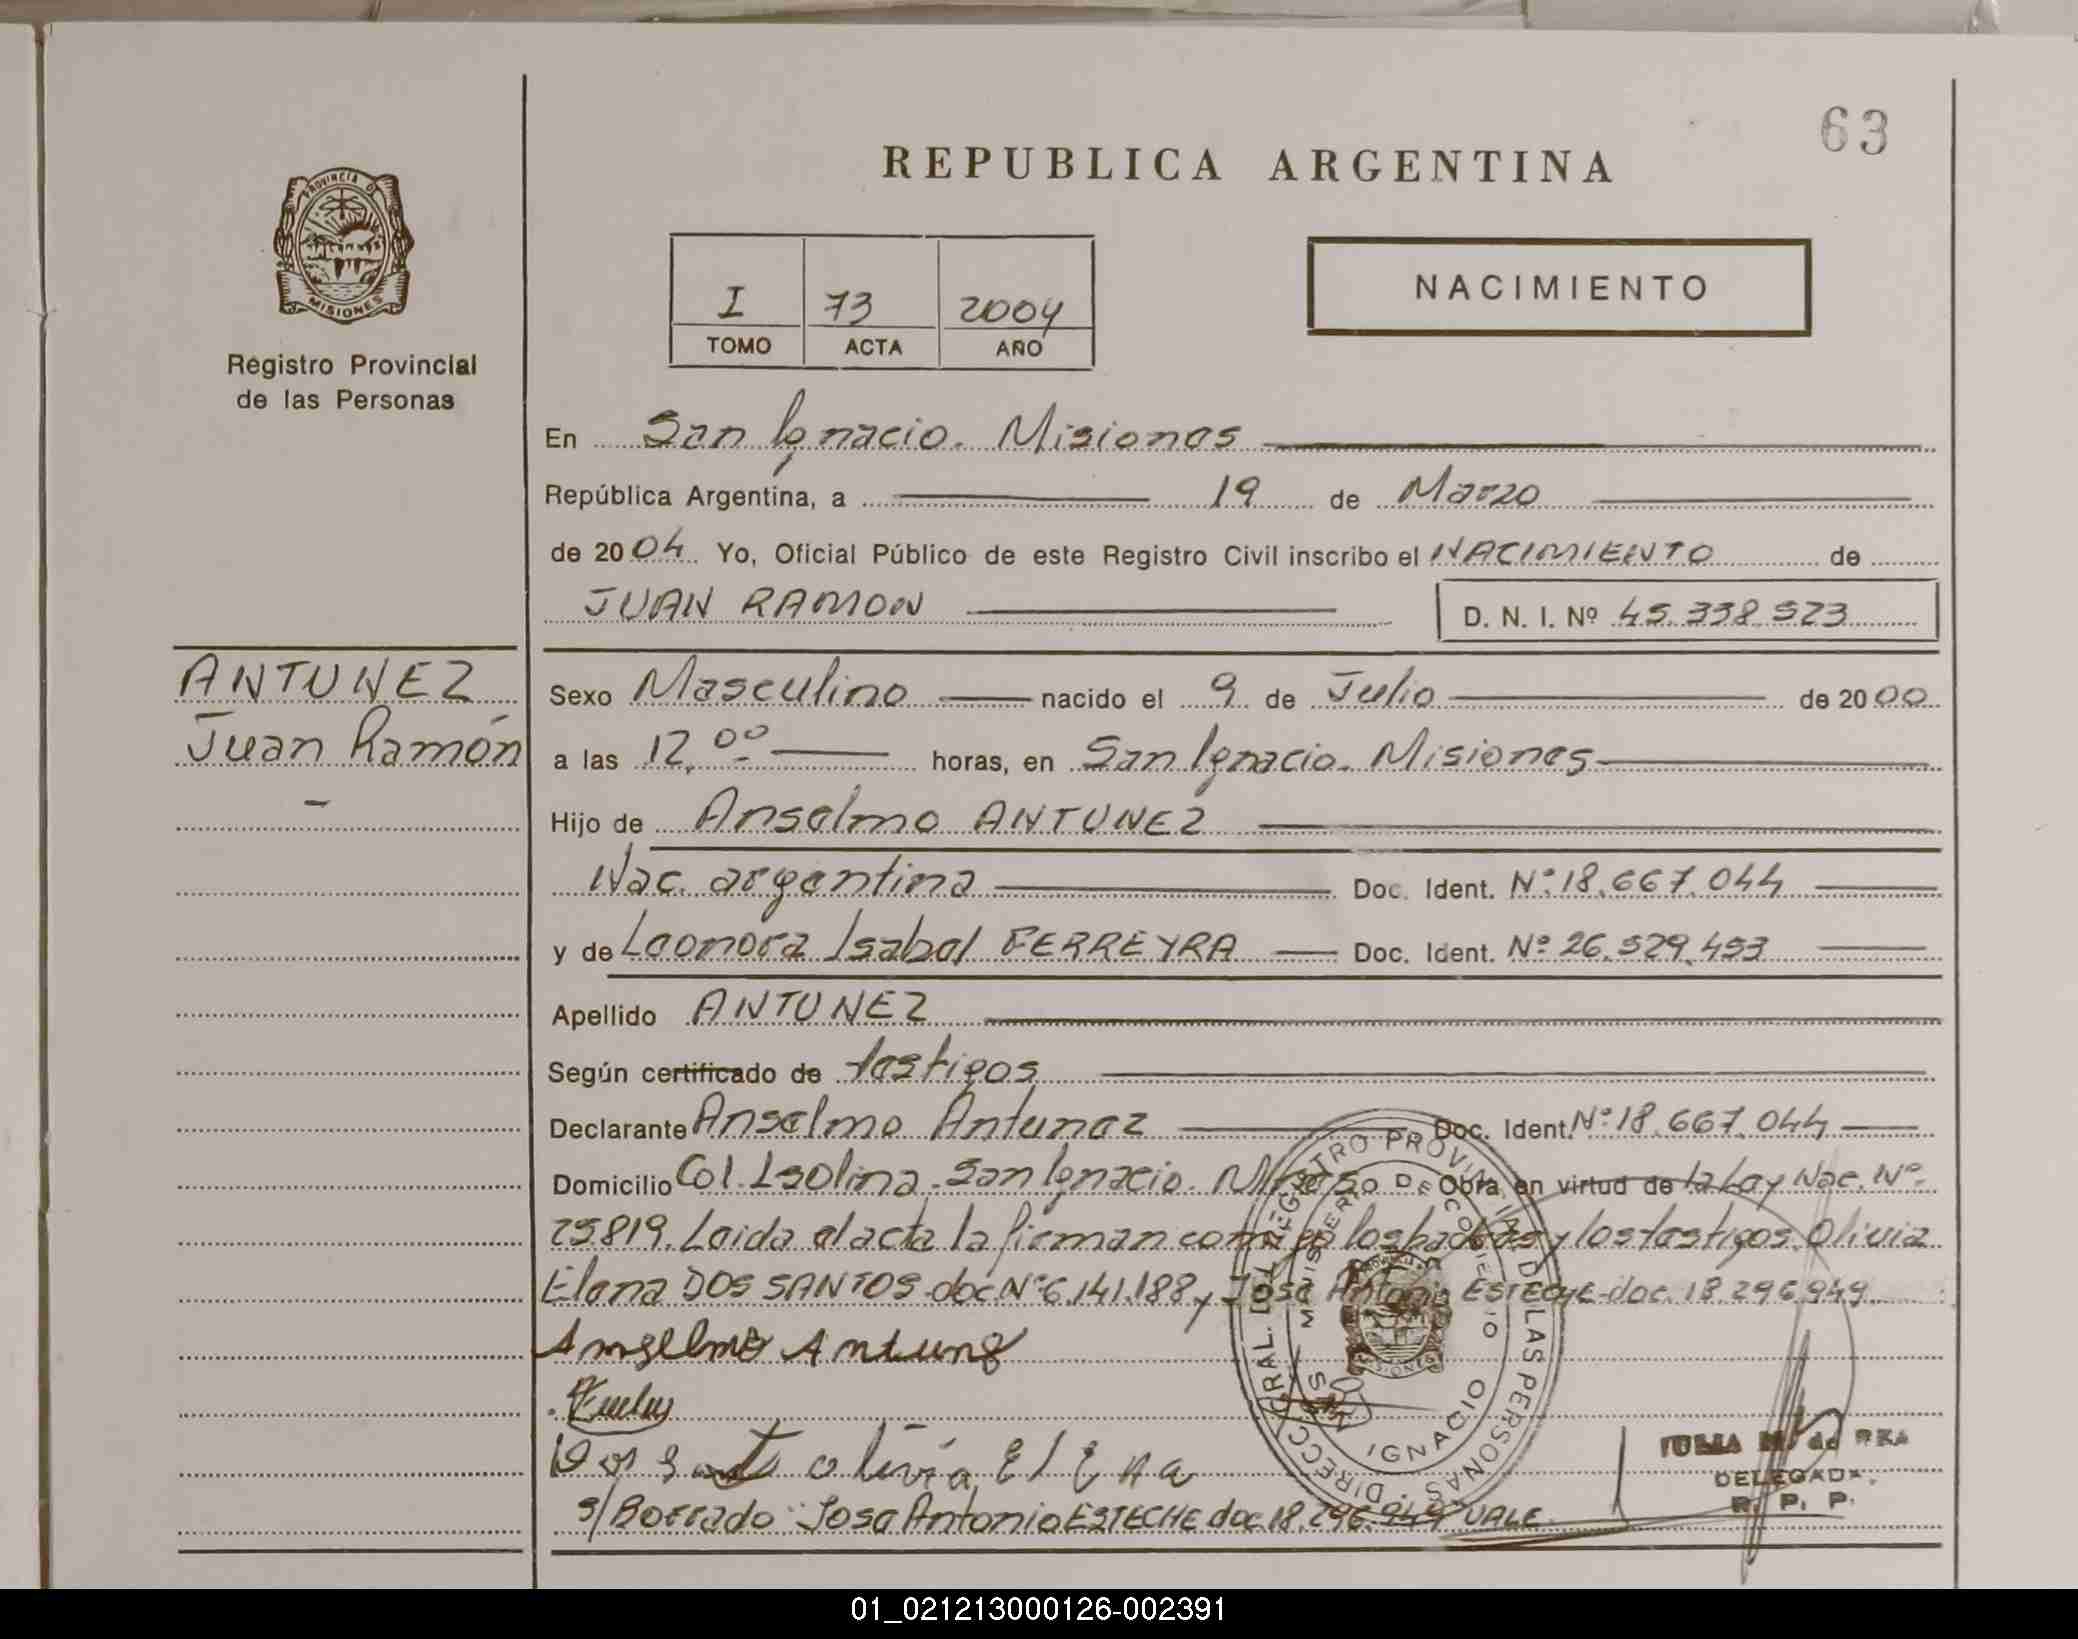 63
REPUBLICA ARGENTINA
PROVINCIA DE
MISIONES
Registro Provincial
de las Personas
I 73 2004
TOMO ACTA AÑO
NACIMIENTO
En San Ignacio. Misiones
República Argentina, a 19 de Marzo
de 2004 Yo, Oficial Público de este Registro Civil inscribo el NACIMIENTO de
JUAN RAMON D. N. I. Nº 45.338.523
ANTUNEZ
Juan Ramón
-
Sexo Masculino nacido el 9 de Julio de 2000
a las 12,00 horas, en San Ignacio. Misiones
Hijo de Anselmo ANTUNEZ
Nac. argentina Doc. Ident. Nº 18.667.044
y de Leonora Isabel FERREYRA Doc. Ident. Nº 26.529.453
Apellido ANTUNEZ
Según certificado de testigos
Declarante Anselmo Antunez Doc. Ident. Nº 18.667.044
Domicilio Col. Isolina. San Ignacio. Obra en virtud de la Ley Nac. Nº
25819. Leida el acta la firman los padres y los testigos. Olivia
Elena DOS SANTOS doc Nº 6.141.188 y José Antonio ESTECHE doc. 18.296.949
Anselmo Antunez
Dos Santo olivia, ElEna
S/Borrado "José Antonio ESTECHE doc 18.296.949 VALE.
DIRECC. GRAL. DEL REGISTRO PROVINCIAL DE LAS PERSONAS
SAN IGNACIO
DELEGADA
R. P. P.
01_021213000126-002391